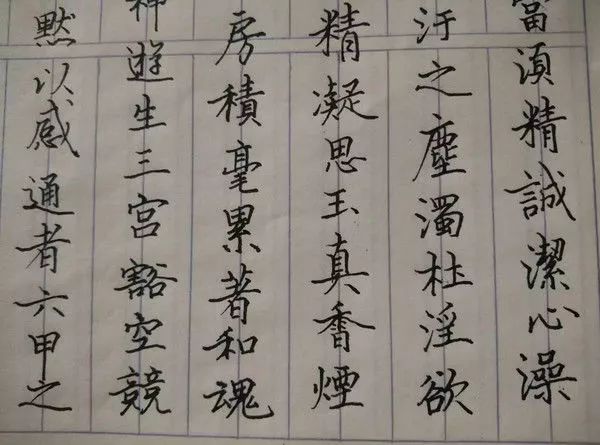 當須精誠潔心澡
汙之塵濁杜淫欲
精凝思玉真香煙
房積毫累著和魂
神遊生三宮豁空競
默以感通者六甲之